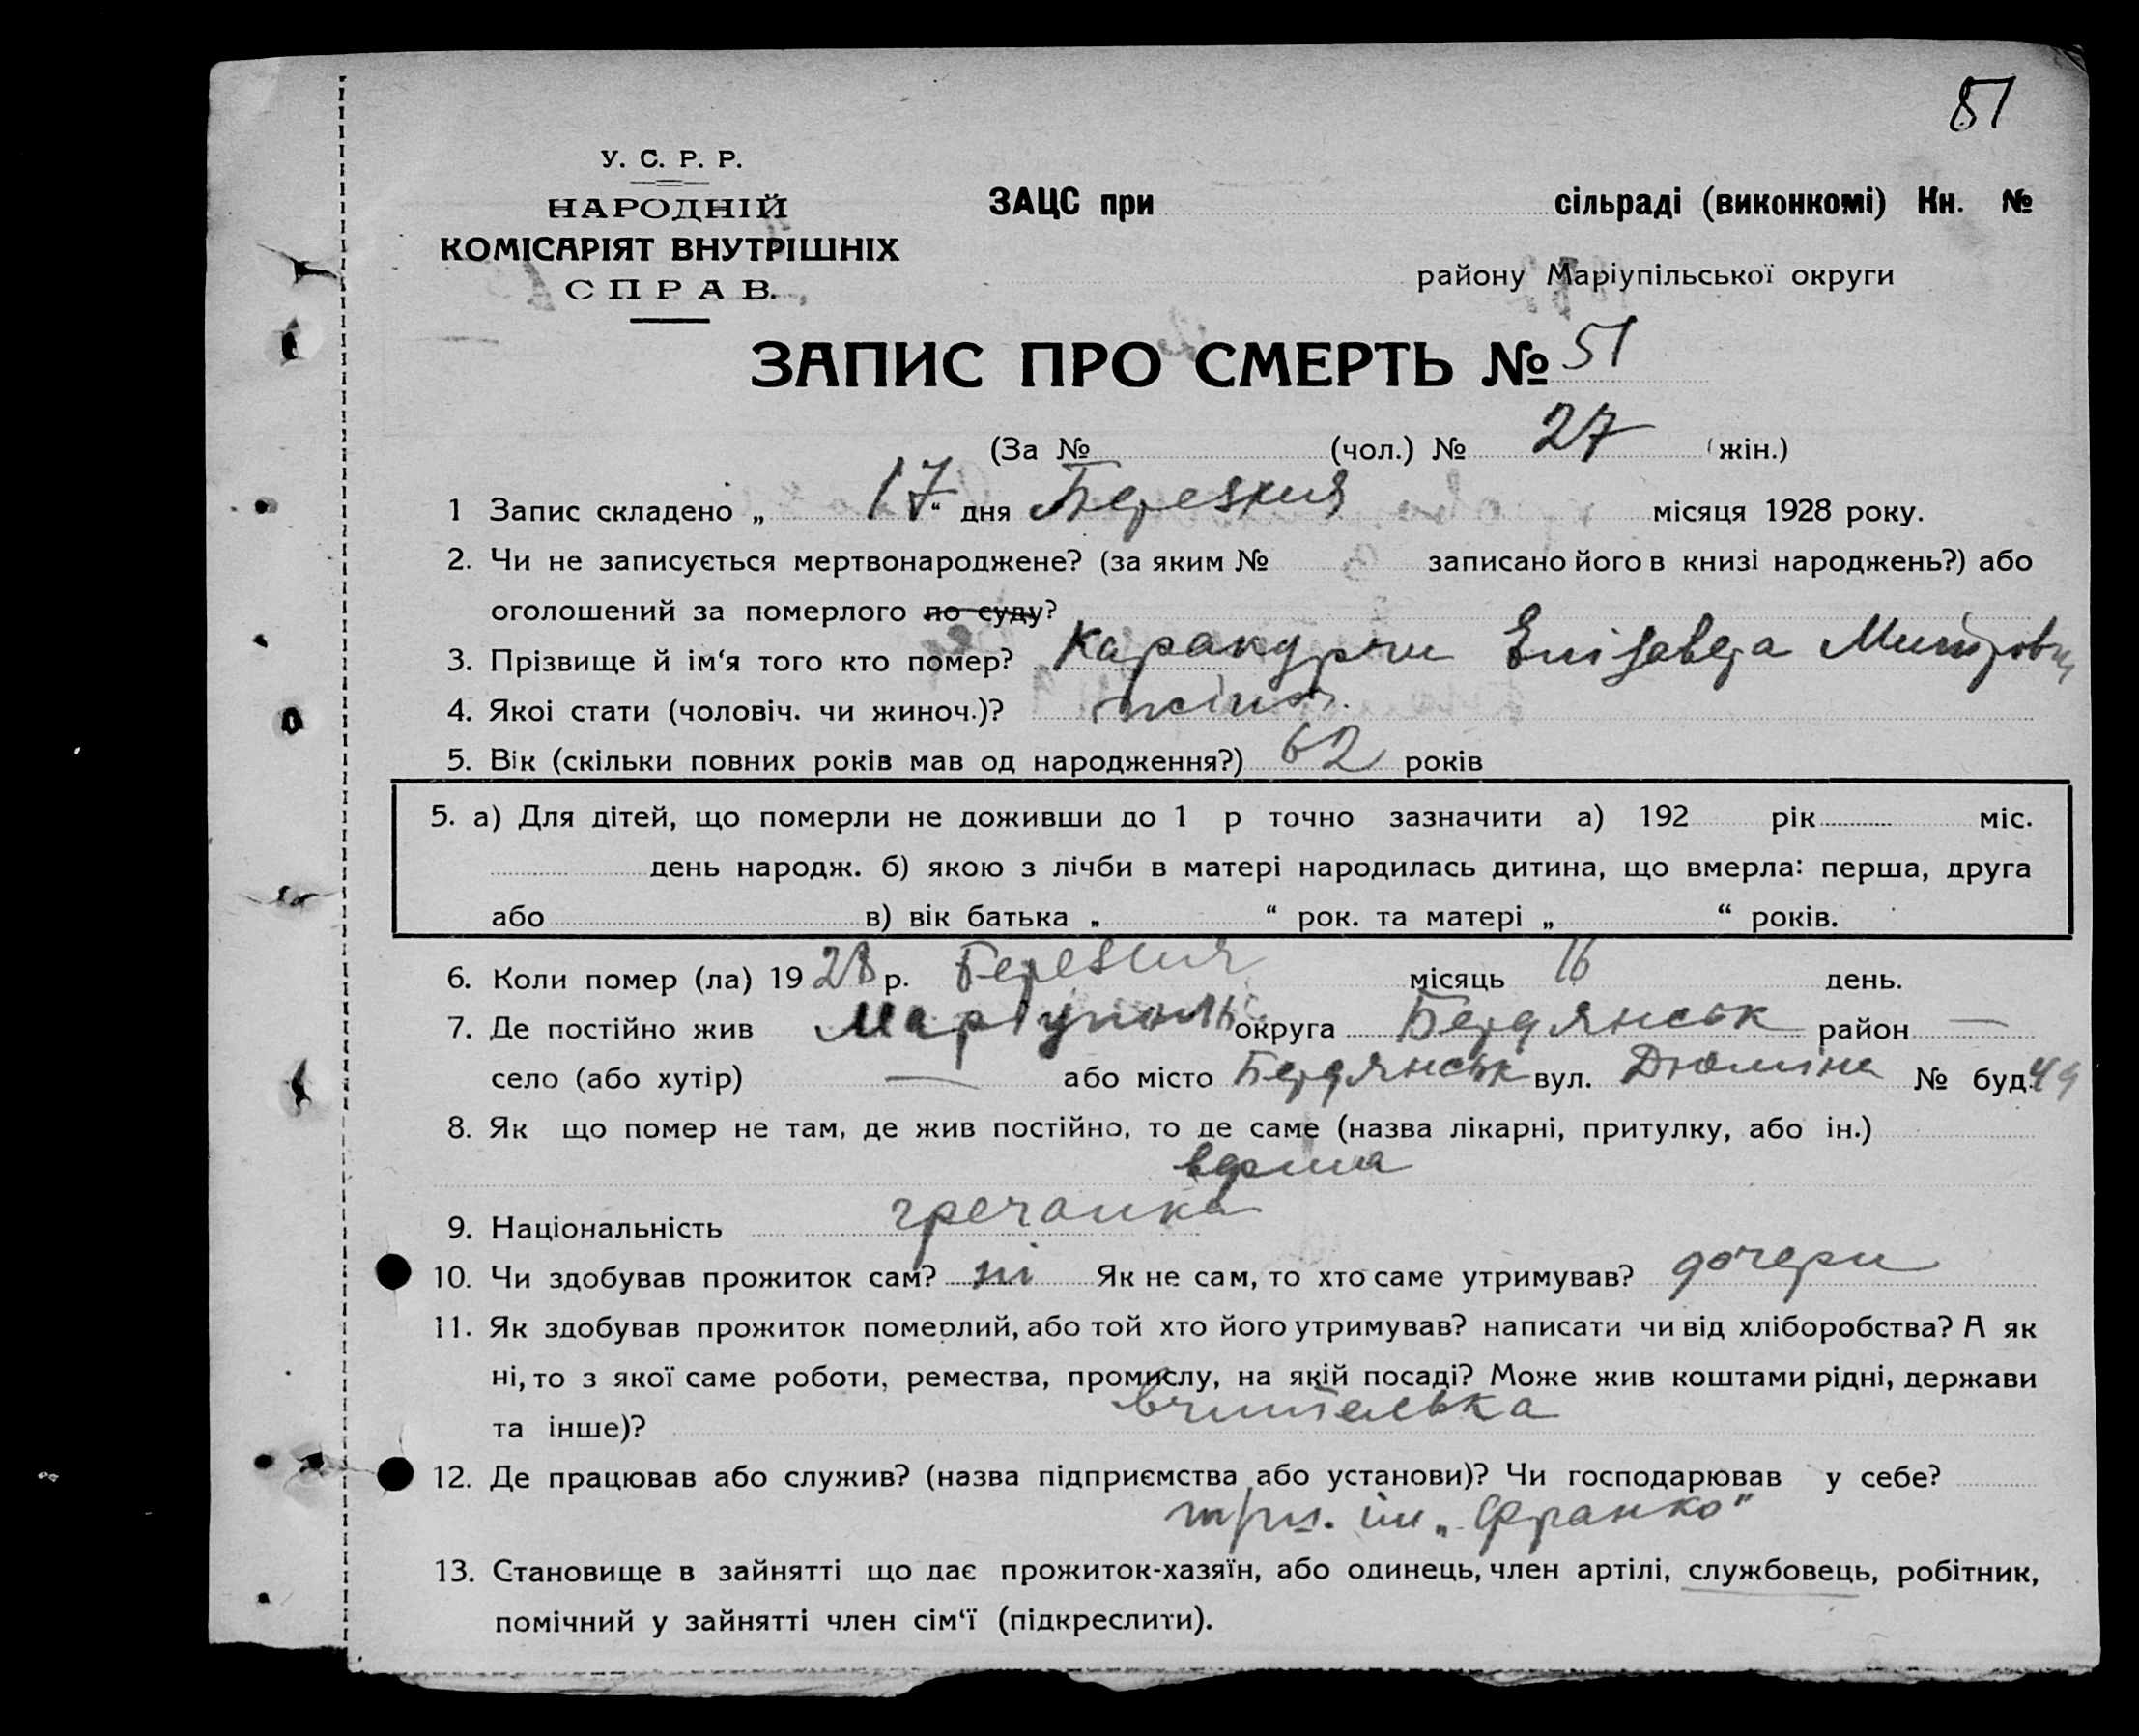 81
У. С. Р. Р.
НАРОДНІЙ
КОМІСАРІЯТ ВНУТРІШНІХ
СПРАВ.
ЗАЦС при сільраді (виконкомі) Кн. №
району Маріупільської округи
ЗАПИС ПРО СМЕРТЬ № 51
(За № (чол.) № 27 (жін.)
1 Запис складено „ 17 “ дня Березня місяця 1928 року.
2. Чи не записується мертвонароджене? (за яким № записано його в книзі народжень?) або
оголошений за померлого по суду?
3. Прізвище й ім‘я того кто помер? Єлізавета
4. Якоі стати (чоловіч. чи жиноч.)? жіноч.
5. Вік (скільки повних років мав од народження?) 62 років
5. а) Для дітей, що померли не доживши до 1 р точно зазначити а) 192 рік міс.
день народж. б) якою з лічби в матері народилась дитина, що вмерла: перша, друга
або в) вік батька „ “ рок. та матері „ “ років.
6. Коли помер (ла) 1928 р. Березня місяць 16 день.
7. Де постійно жив Маріупольс округа Бердянськ район —
село (або хутір) — або місто Бердянськ вул. Дюміна № буд. 49
8. Як що помер не там, де жив постійно, то де саме (назва лікарні, притулку, або ін.)
вдома
9. Національність гречанка
10. Чи здобував прожиток сам? ні Як не сам, то хто саме утримував? дочери
11. Як здобував прожиток померлий, або той хто його утримував? написати чи від хліборобства? А як
ні, то з якої саме роботи, ремества, промислу, на якій посаді? Може жив коштами рідні, держави
та інше)? вчителька
12. Де працював або служив? (назва підприємства або установи)? Чи господарював у себе?
ім „Франко“
13. Становище в зайнятті що дає прожиток-хазяїн, або одинець, член артілі, службовець, робітник,
помічний у зайнятті член сім‘ї (підкреслити).